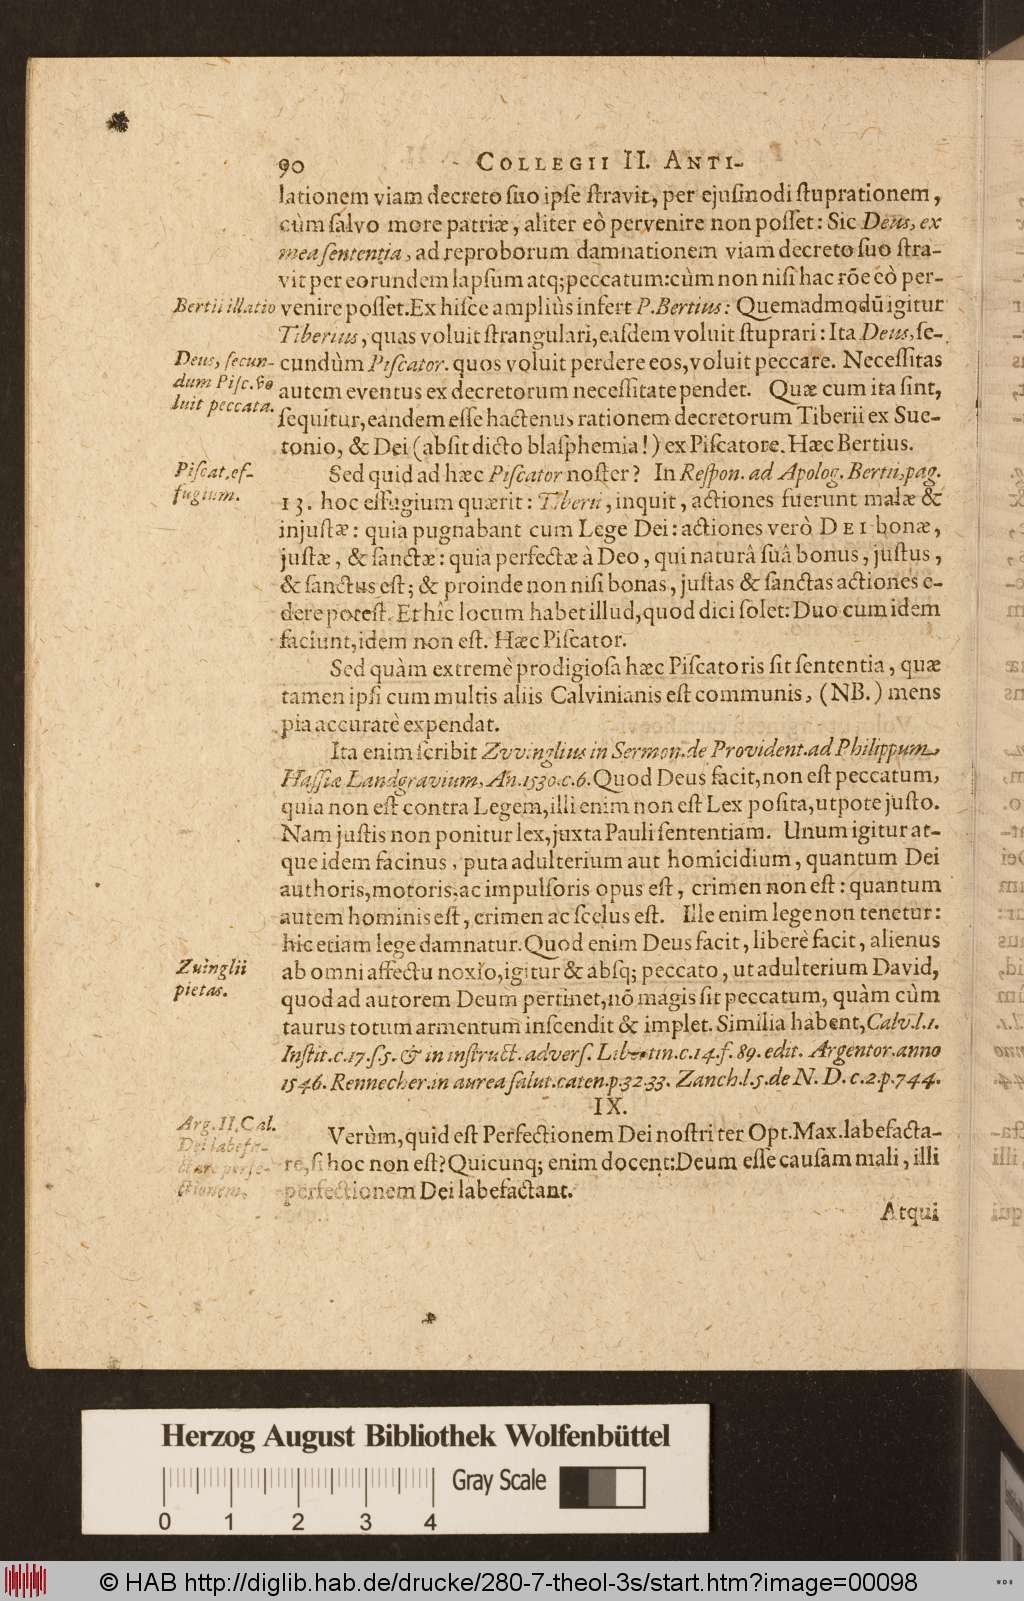 90 COLLEGII II. ANTI-
lationem viam decreto ſuo ipſe ſtravit, per ejuſmodi ſtuprationem,
cùm ſalvo more patriæ, aliter eò pervenire non poſſet: Sic Deus, ex
mea ſententia, ad reproborum damnationem viam decreto ſuo ſtra-
vit per eorundem lapſum atq; peccatum: cùm non niſi hac rõe eò per-
Bertii illatio
venire poſſet. Ex hiſce ampliùs infert P. Bertius: Quemadmodū igitur
Tiberius, quas voluit ſtrangulari, eaſdem voluit ſtuprari: Ita Deus, ſe-
Deus, ſecun-
dum Piſc. vo
luit peccata.
cundùm Piſcator. quos voluit perdere eos, voluit peccare. Neceſſitas
autem eventus ex decretorum neceſſitate pendet. Quæ cum ita ſint,
ſequitur, eandem eſſe hactenus rationem decretorum Tiberii ex Sue-
tonio, & Dei (abſit dicto blaſphemia!) ex Piſcatore. Hæc Bertius.
Piſcat. ef-
fugium.
Sed quid ad hæc Piſcator noſter? In Reſpon. ad Apolog. Bertii, pag.
13. hoc effugium quærit: Tiberii, inquit, actiones fuerunt malæ &
injuſtæ: quia pugnabant cum Lege Dei: actiones verò DEI bonæ,
juſtæ, & ſanctæ: quia perfectæ à Deo, qui naturâ ſuâ bonus, juſtus,
& ſanctus eſt; & proinde non niſi bonas, juſtas & ſanctas actiones e-
dere poteſt. Et hîc locum habet illud, quod dici ſolet: Duo cum idem
faciunt, idem non eſt. Hæc Piſcator.
Sed quàm extremè prodigioſa hæc Piſcatoris ſit ſententia, quæ
tamen ipſi cum multis aliis Calvinianis eſt communis, (NB.) mens
pia accuratè expendat.
Ita enim ſcribit Zvvinglius in Sermon. de Provident. ad Philippum,
Haſſiæ Landgravium, An. 1530. c. 6. Quod Deus facit, non eſt peccatum,
quia non eſt contra Legem, illi enim non eſt Lex poſita, utpote juſto.
Nam juſtis non ponitur lex, juxta Pauli ſententiam. Unum igitur at-
que idem facinus, puta adulterium aut homicidium, quantum Dei
authoris, motoris, ac impulſoris opus eſt, crimen non eſt: quantum
autem hominis eſt, crimen ac ſcelus eſt. Ille enim lege non tenetur:
hic etiam lege damnatur. Quod enim Deus facit, liberè facit, alienus
Zuinglii
pietas.
ab omni affectu noxio, igitur & abſq; peccato, ut adulterium David,
quod ad autorem Deum pertinet, nō magis ſit peccatum, quàm cùm
taurus totum armentum inſcendit & implet. Similia habent, Calv. l. 1.
Inſtit. c. 17. ſ. 5. & in inſtruct. adverſ. Libertin. c. 14. f. 89. edit. Argentor. anno
1546. Rennecher. in aurea ſalut. caten. p. 32. 33. Zanch. l. 5. de N. D. c. 2. p. 744.
IX.
Arg. II. Cal.
Dei labefa-
ctare perfe-
ctionem.
Verùm, quid eſt Perfectionem Dei noſtri ter Opt. Max. labefacta-
re, ſi hoc non eſt? Quicunq; enim docent: Deum eſſe cauſam mali, illi
perfectionem Dei labefactant.
Atqui
Herzog August Bibliothek Wolfenbüttel
Gray Scale
0 1 2 3 4
© HAB http://diglib.hab.de/drucke/280-7-theol-3s/start.htm?image=00098